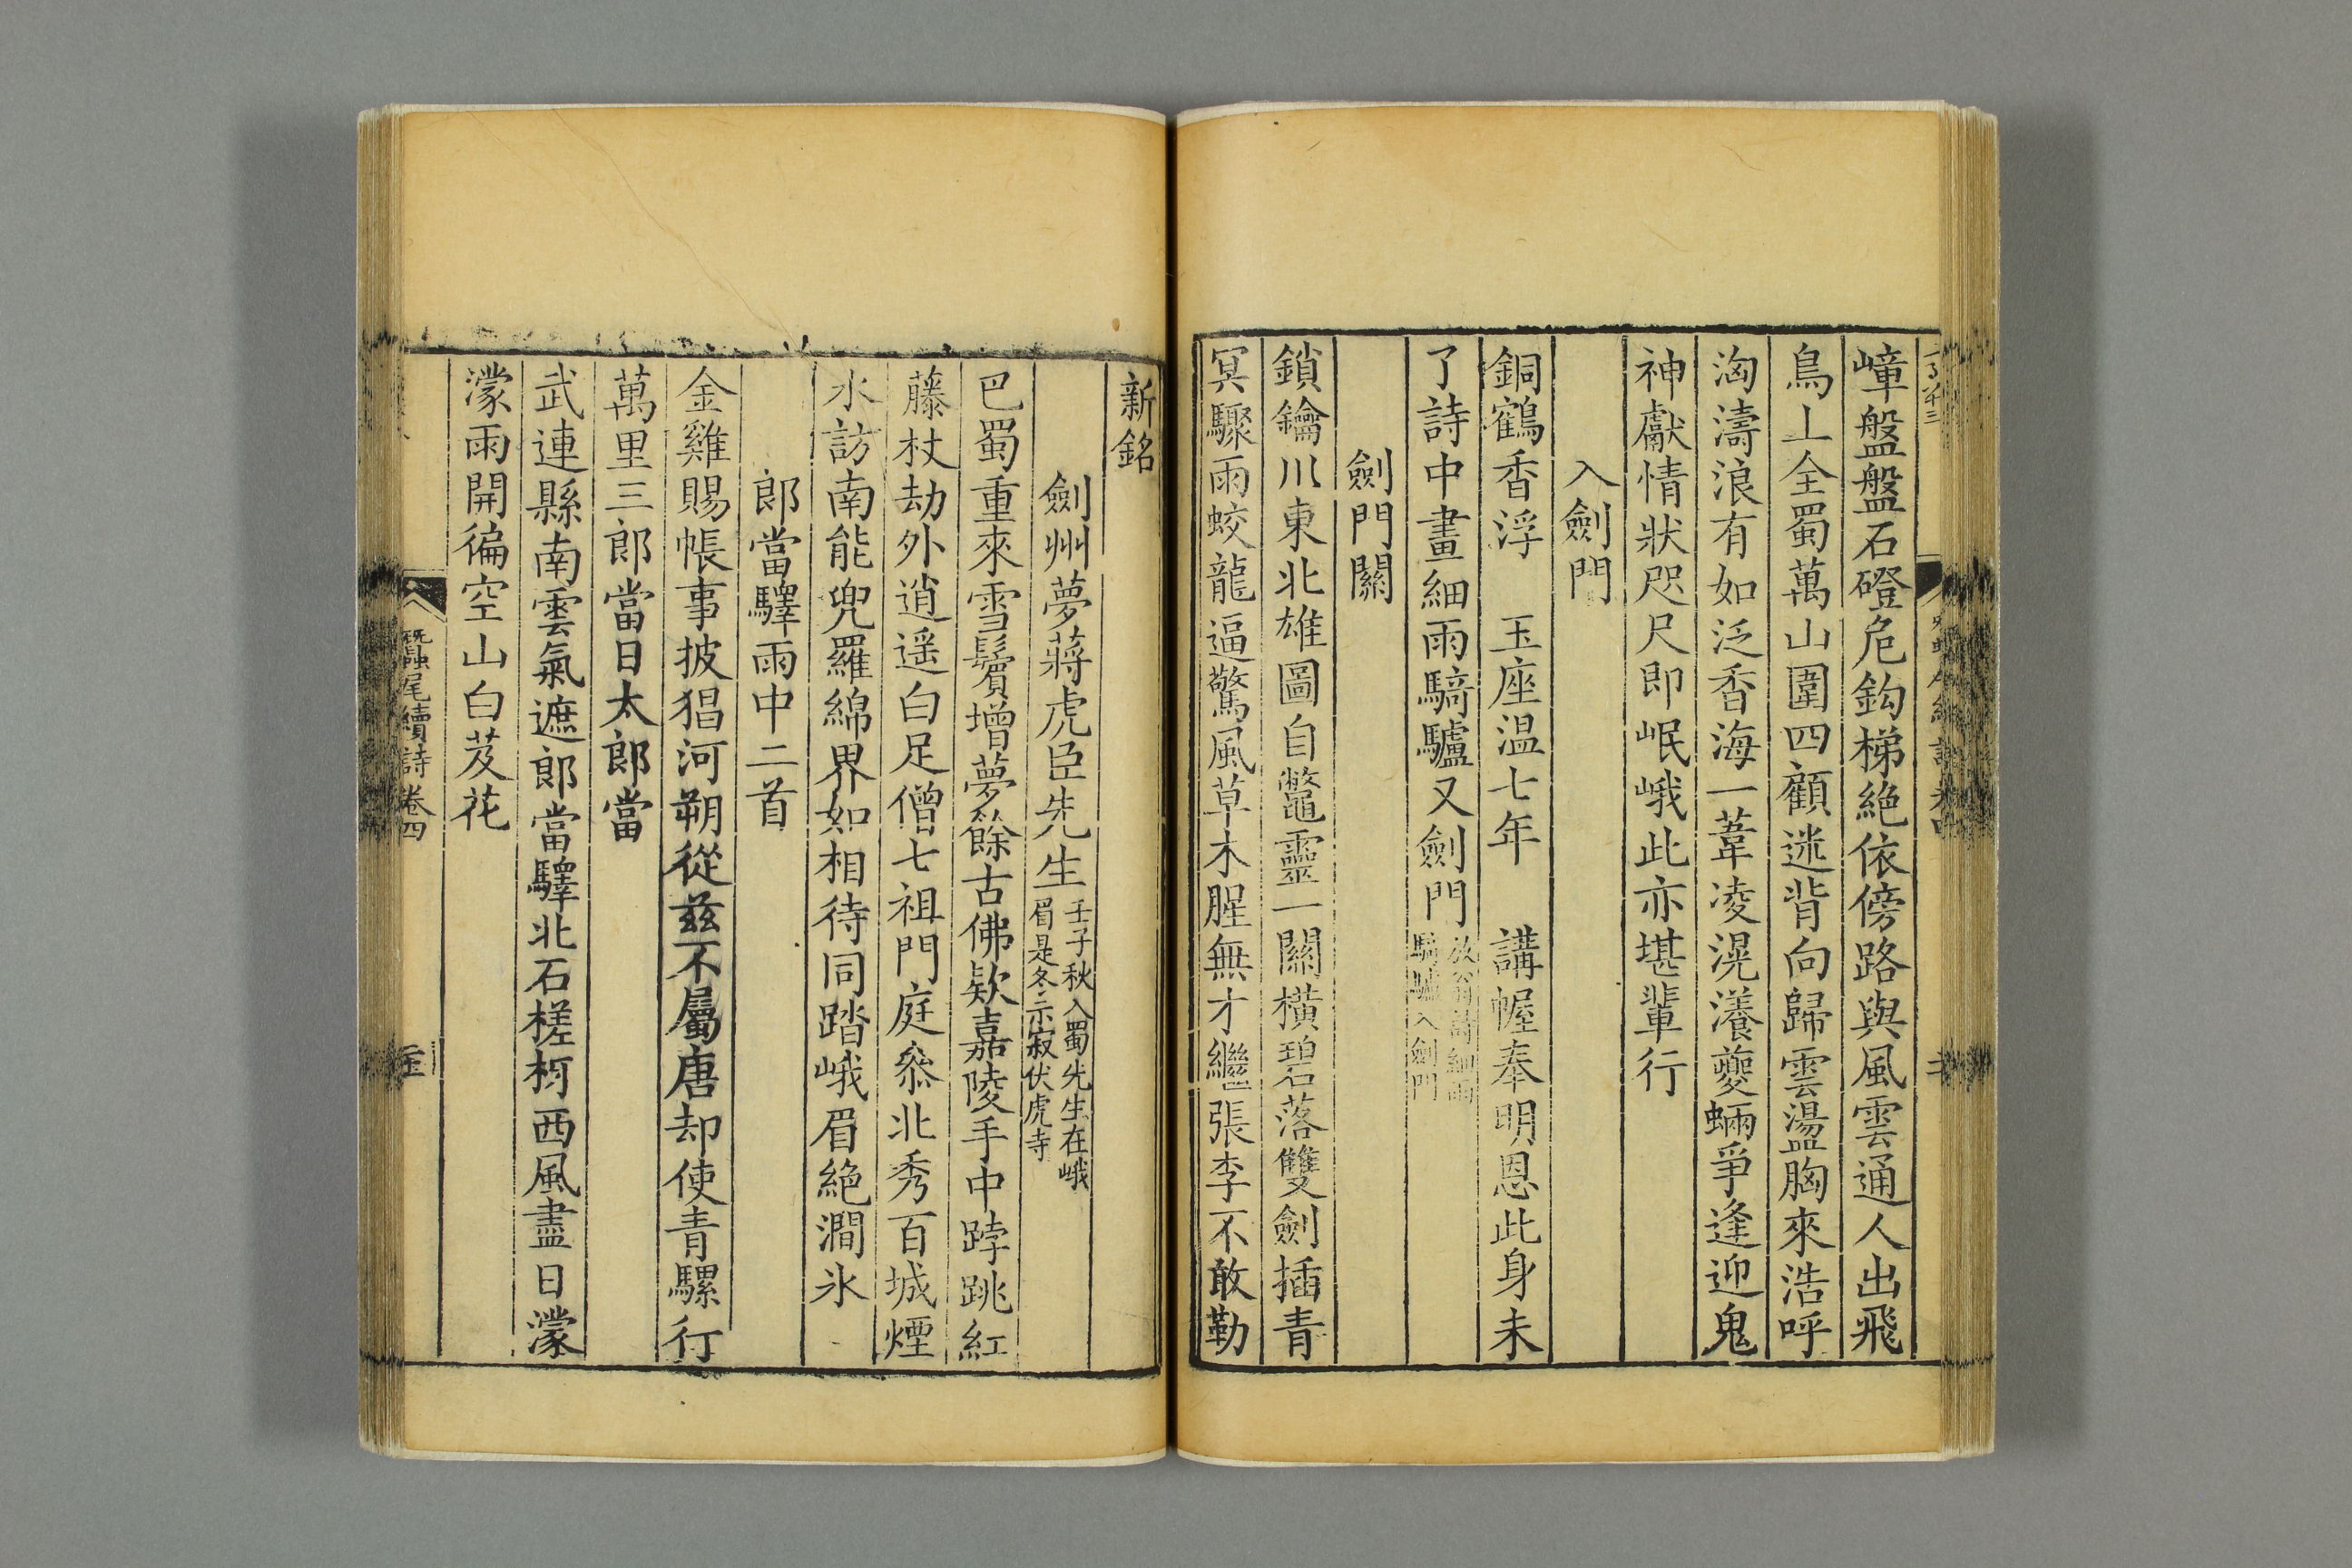 嶂盤盤石磴危鈎梯絶依傍路與風雲通人出飛
鳥上全蜀萬山圍四顧迷背向歸雲盪胸來浩呼
洶濤浪有如泛香海一葦凌滉瀁夔蜽爭逢迎鬼
神獻情狀咫尺即岷峨此亦堪輩行
入劍門
銅鶴香浮 玉座温七年 講幄奉明恩此身未
了詩中畫細雨騎驢又劍門
放翁詩細雨
騎驢入劍門
劍門關
鎖鑰川東北雄圖自鼈靈一關横碧落雙劍插青
冥驟雨蛟龍逼驚風草木腥無才繼張李不敢勒
新銘
劍州夢蔣虎臣先生
壬子秋入蜀先生在峨
眉是冬示寂伏虎寺
巴蜀重來雪鬢增夢餘古佛欵嘉陵手中踍跳紅
藤杖劫外逍遥白足僧七祖門庭叅北秀百城煙
水訪南能兜羅綿界如相待同踏峨眉絶澗氷
郎當驛雨中二首
金雞賜帳事披猖河朔從兹不屬唐却使青騾行
萬里三郎當日太郎當
武連縣南雲氣遮郎當驛北石槎枒西風盡日濛
濛雨開徧空山白芨花
蠶尾續詩卷四